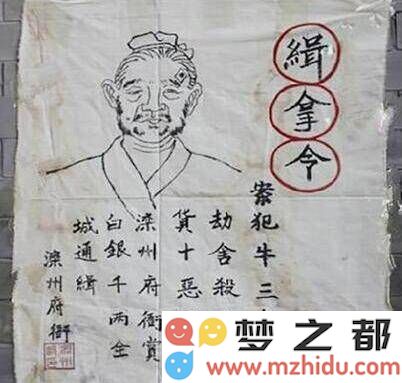 緝拿令
案犯牛三
劫舍殺
貨十惡
滦州府衙賞
白銀千两全
城通緝
滦州府衙
梦之都
www.mzhidu.com